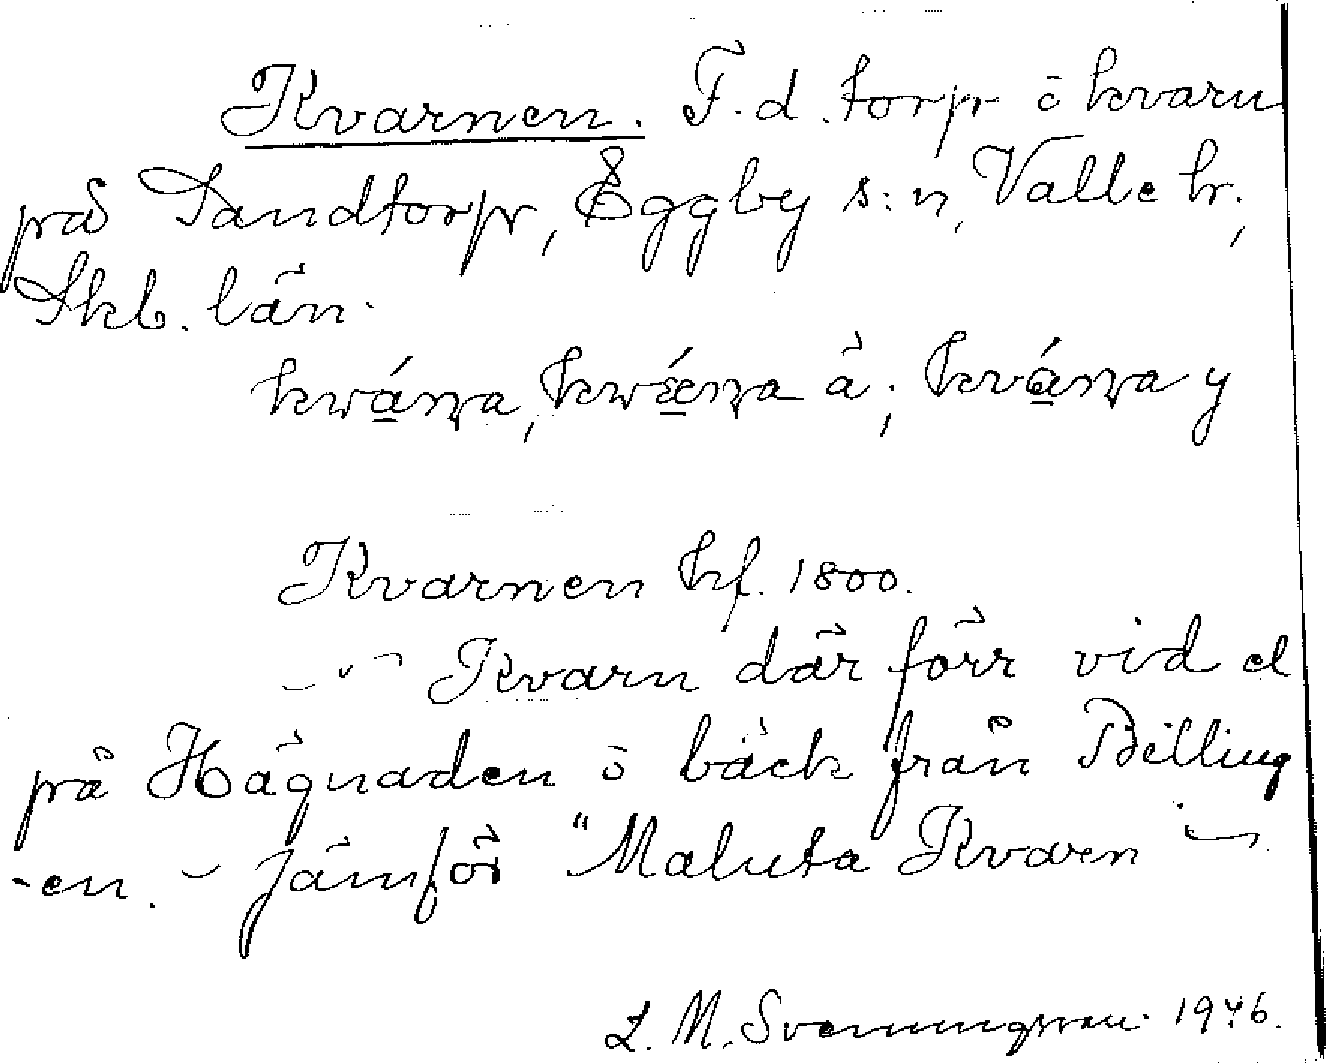 Kvarnen. F.d. torp o kvarn
på Sandtorp, Eggby s:n, Valle hr,
Skb. län.
kwána, kwǽna å; kvána y
Kvarnen hf. 1800.
-"- Kvarn där förr vid el
på Hägnaden o bäck från Billing
-en. - Jämför "Maluta Kvarn"
L. M. Svenungsson. 1946.